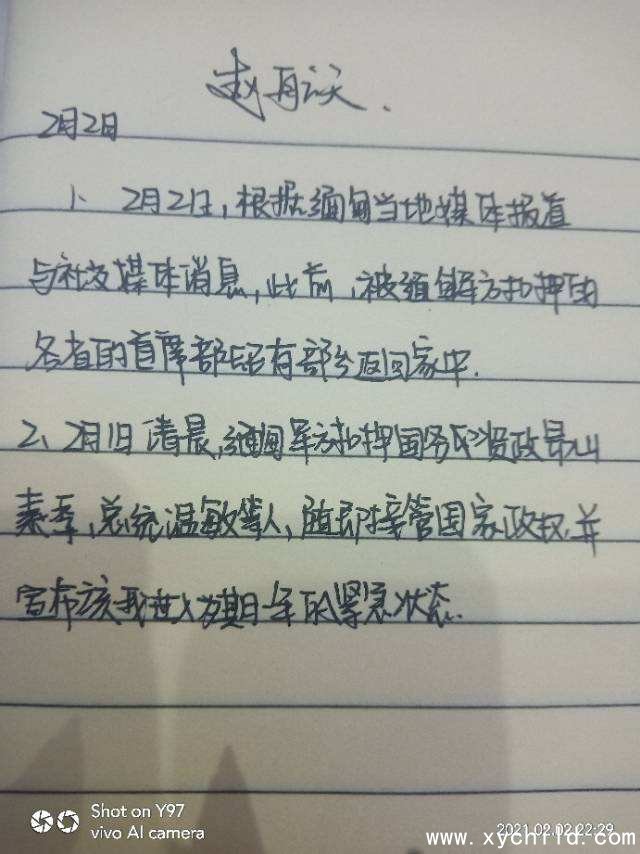 赵再议.
2月2日
1、2月2日，根据缅甸当地媒体报道
与社交媒体消息，此前，被缅军方扣押的
各省的首席部长有部分返回家中.
2、2月1日清晨，缅甸军方扣押国务资政昂山
素季、总统温敏等人，随即接管国家政权，并
宣布该国进入为期一年的紧急状态.
Shot on Y97
vivo AI camera
2021.02.02 22:29
www.xychrld.com